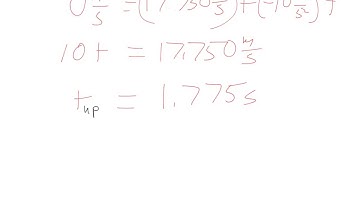 0 m/s = (17.750 m/s) + (-10 m/s²) t
10t = 17.750 m/s
t up = 1.775s